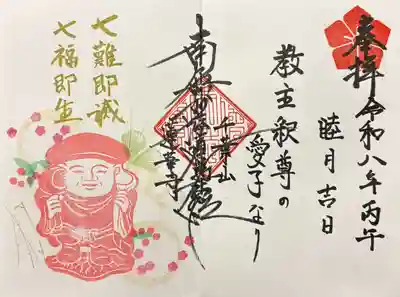 奉拝 令和八年丙午
睦月吉日
教主釈尊の
愛子なり
千葉山
蓮華寺
七難即滅
七福即生